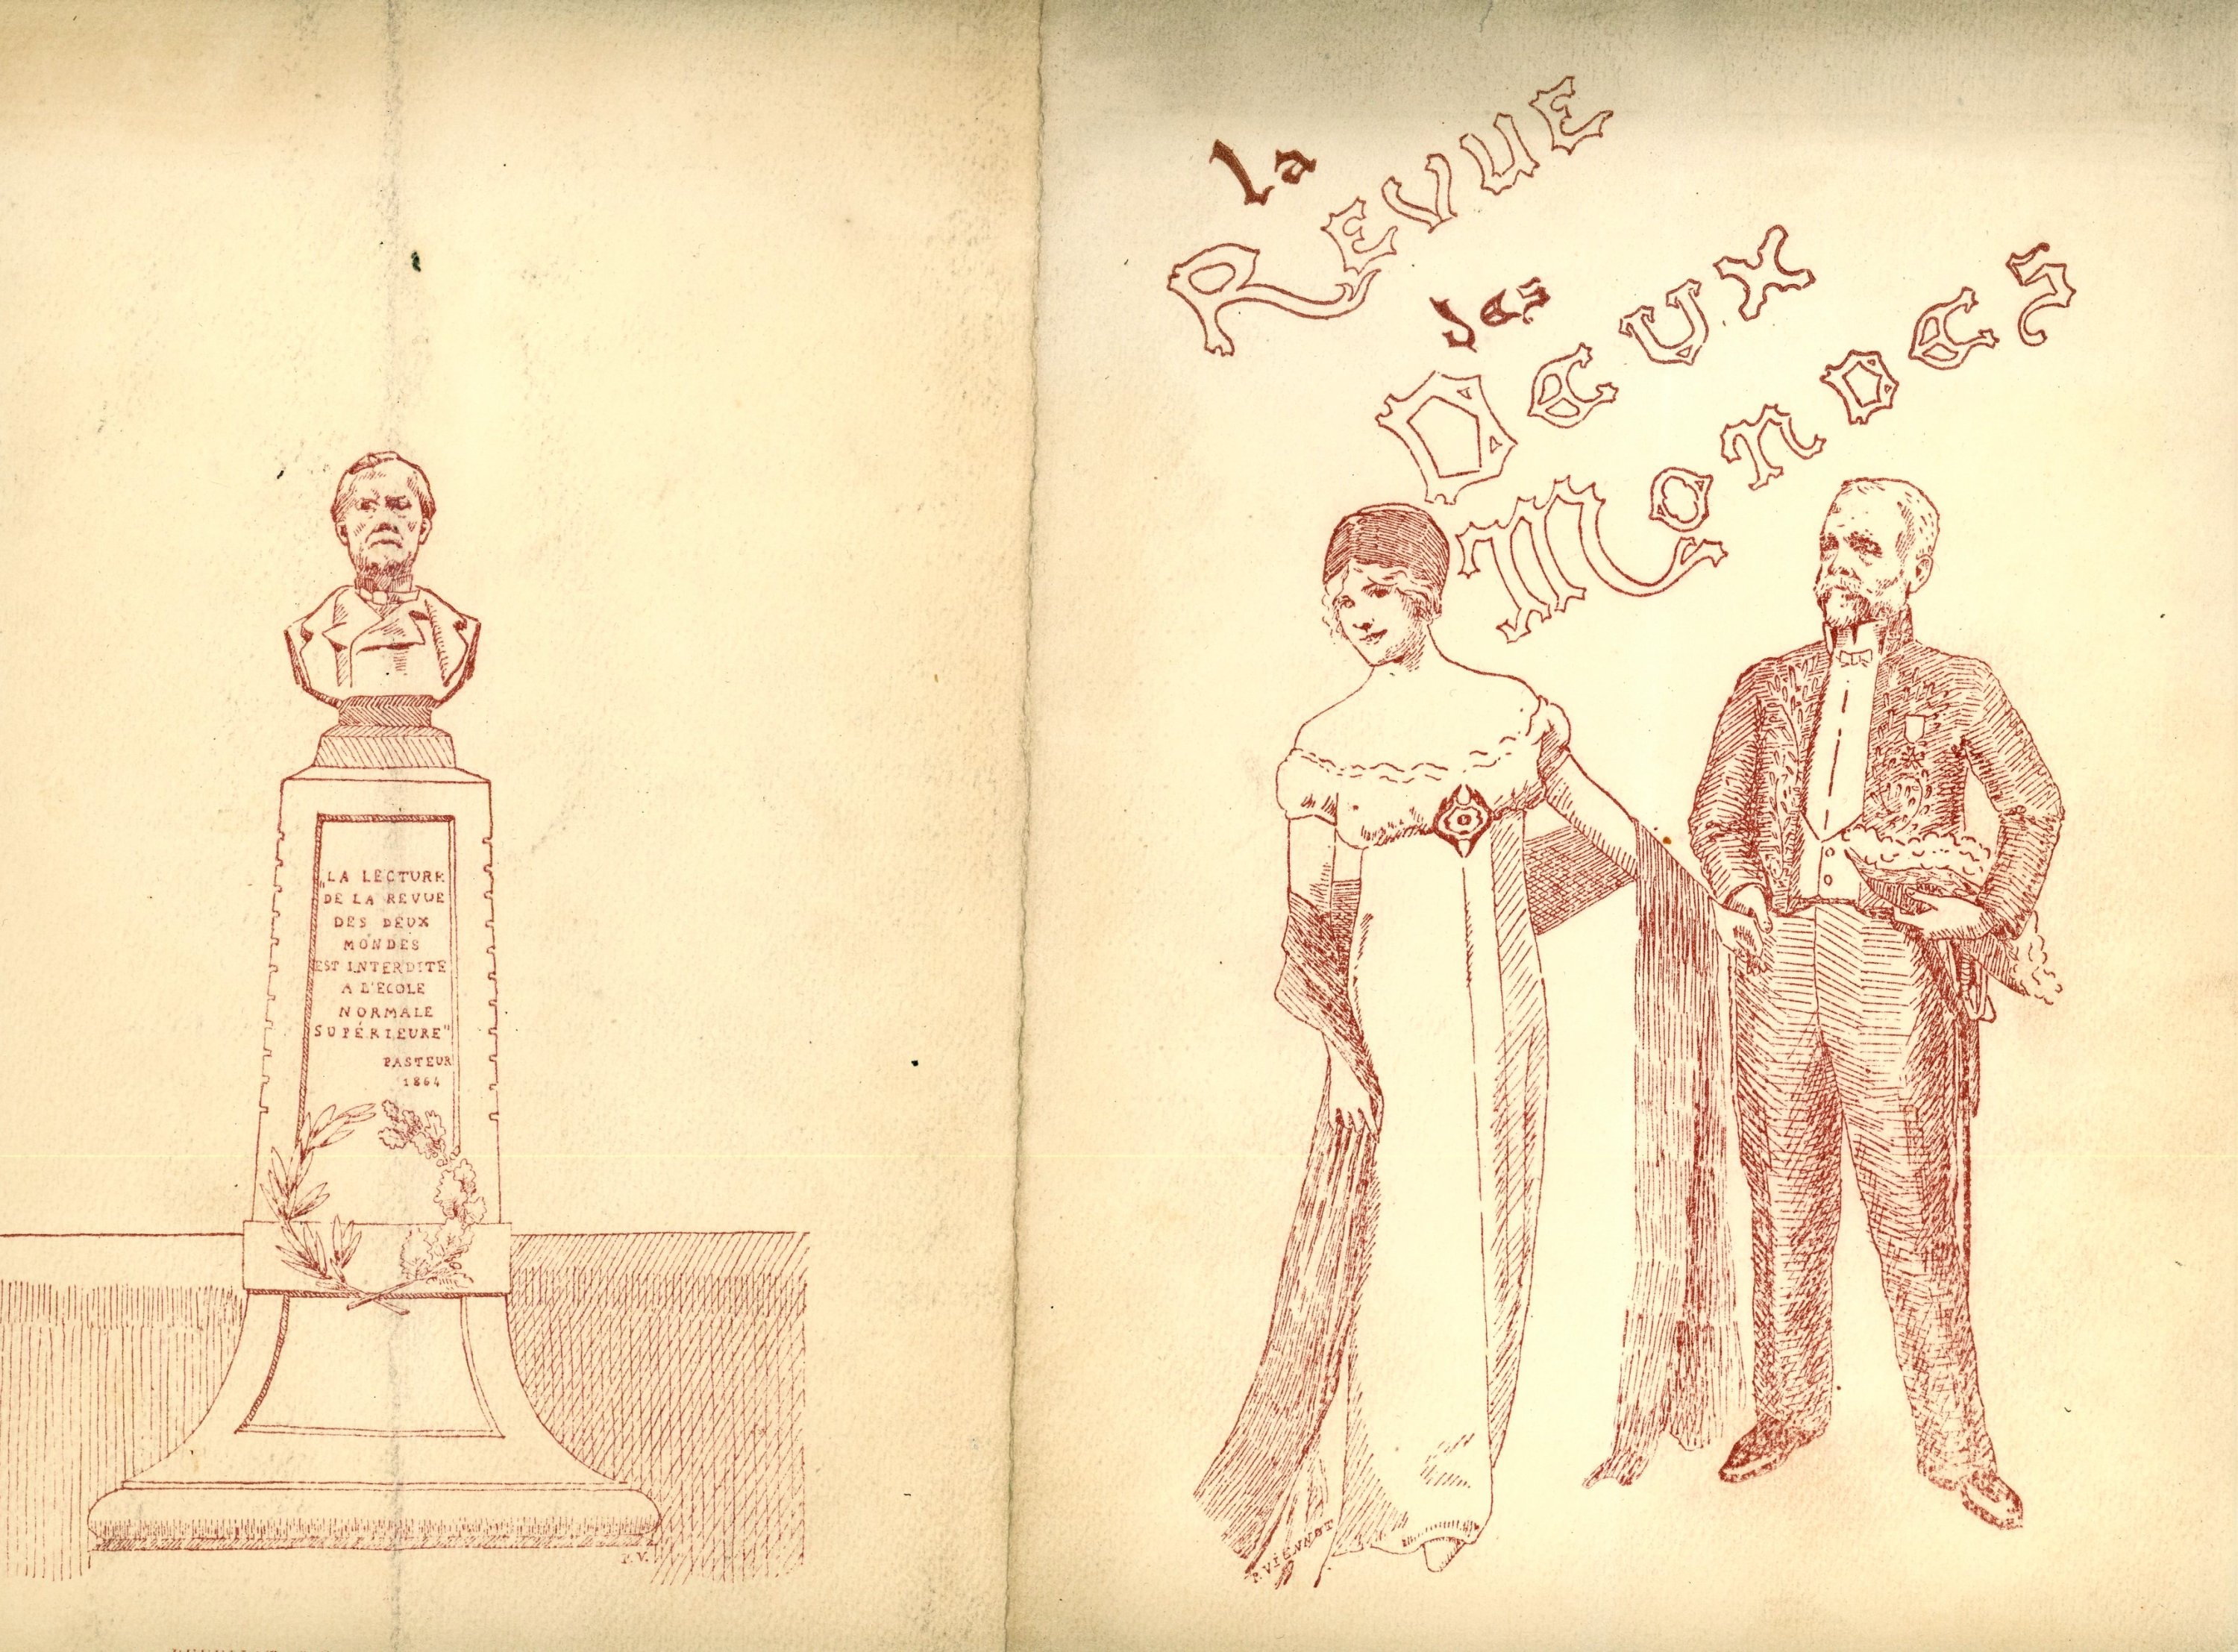 "LA LECTURE
DE LA REVUE
DES DEUX
MONDES
EST INTERDITE
A L'ECOLE
NORMALE
SUPÉRIEURE"
PASTEUR
1864
P.V.
la
REVUE
des
DEUX
MONDES
P. VIENNOT